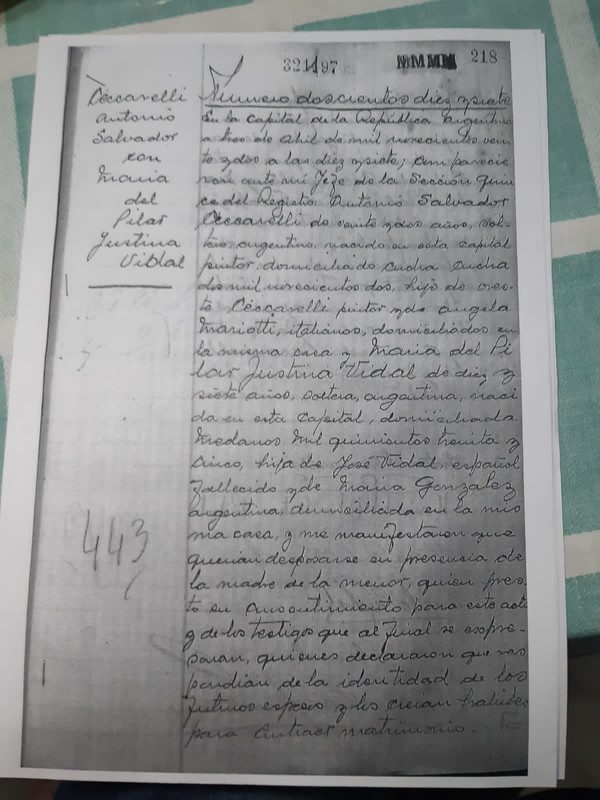 321497
218
Ceccarelli
Antonio
Salvador
con
Maria
del
Pilar
Justina
Vidal
443
Numero doscientos diez y siete
En la Capital de la República Argentina
a tres de Abril de mil novecientos vein
te y dos a las diez y siete; comparecie
ron ante mi Jefe de la Sección Quin
ce del Registro: Antonio Salvador
Ceccarelli de veinte y dos años, sol-
tero, argentino, nacido en esta Capital
pintor, domiciliado Cucha Cucha
dos mil novecientos dos, hijo de Ores-
te Ceccarelli pintor y de Angela
Mariotti, italianos, domiciliados en
la misma casa y Maria del Pi
lar Justina Vidal de diez y
siete años, soltera, argentina, naci
da en esta Capital, domiciliada
Medanos mil quinientos treinta y
cinco, hija de José Vidal, español
fallecido y de Maria Gonzalez
argentina, domiciliada en la mis
ma casa, y me manifestaron que
querian desposarse en presencia de
la madre de la menor, quien pres
tó su consentimiento para este acto
y de los testigos que al final se expre-
saran, quienes declararon que res
pondian de la identidad de los
futuros esposos y los creian habiles
para contraer matrimonio.